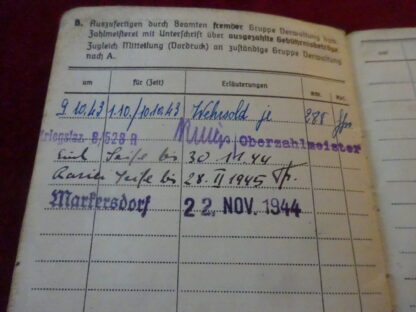 B. Auszufertigen durch Beamten fremder Gruppe Verwaltung bzw.
Zahlmeisterei mit Unterschrift über ausgezahlte Gebührnisbeträge.
Zugleich Mitteilung (Vordruck) an zuständige Gruppe Verwaltung
nach A.
am für (Zeit) Erläuterungen RM. Rpf.
9.10.43 1.10./10.10.43 Wehrsold je
Kriegslaz. 8/528 R Oberzahlmeister
Seife bis 30. 11. 44
Seife bis 28. II 1945
Markersdorf 22. NOV. 1944